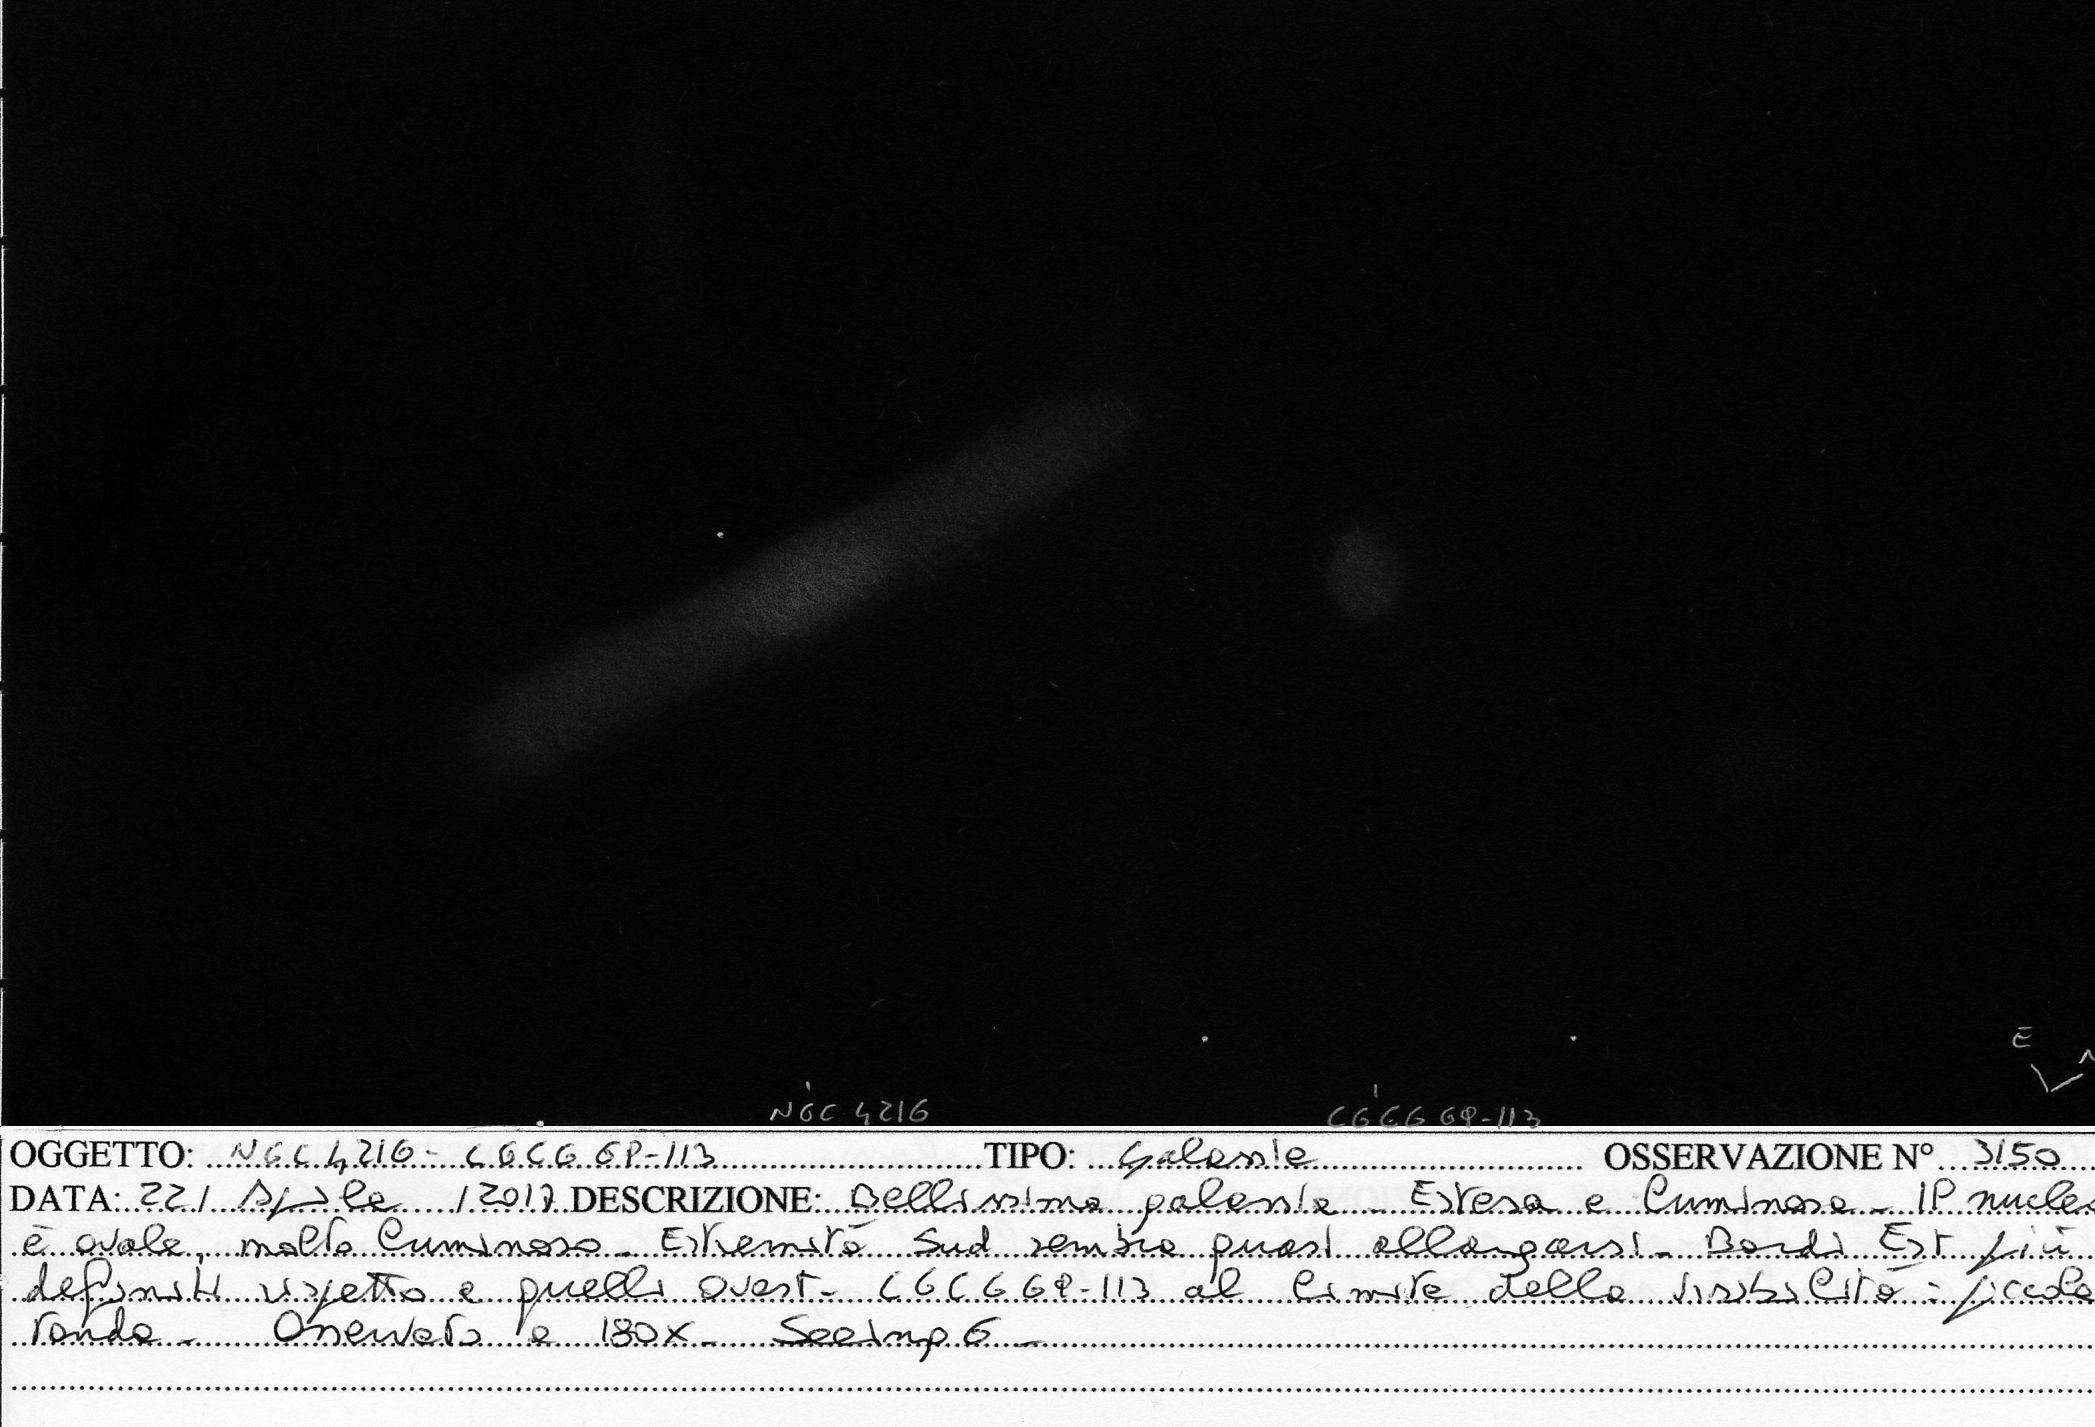 E
N
NGC 4216 CGCG 69-113
OGGETTO: NGC 4216 - CGCG 69-113 TIPO: Galassie OSSERVAZIONE N° 3150
DATA: 22 / Aprile / 2017 DESCRIZIONE: Bellissima galassia - Estesa e luminosa - Il nucleo
è ovale, molto luminoso - Estremità Sud sembra quasi allargarsi - Bordi Est più
definiti rispetto a quelli Ovest - CGCG 69-113 al limite della visibilità: piccola
tonda - Osservato a 180X - Seeing 6 -